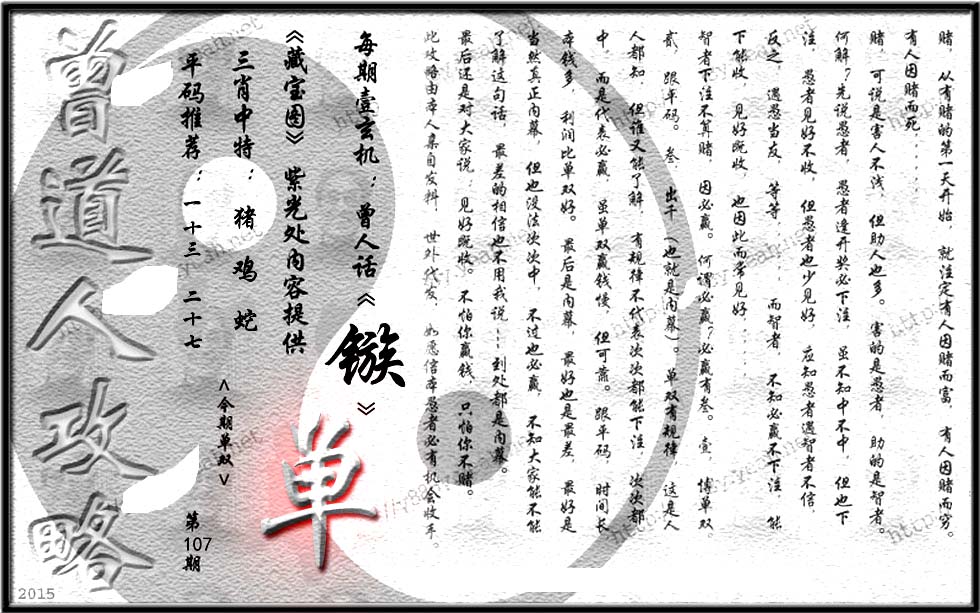 赌，从有赌的第一天开始，就注定有人因赌而富，有人因赌而穷。
有人因赌而死......
赌，可说是害人不浅，但助人也多。害的是愚者，助的是智者。
何解？先说愚者，愚者逢开奖必下注，虽不知中不中，但也下
注，愚者见好不收，但愚者也少见好，应知愚者遇智者不信，
反之，遇愚当友，等等......而智者，不知必赢不下注，能
下能收，见好既收，也因此而常见好......
智者下注不算赌，因必赢。何谓必赢？必赢有叁。壹，博单双，
贰，跟平码。叁，出千（也就是内幕）。单双有规律，这是人
人都知，但谁又能了解，有规律不代表次次都能下注，次次都
中，而是代表必赢，虽单双赢钱慢，但可靠。跟平码，时间长，
本钱多，利润比单双好。最后是内幕，最好也是最差，最好是
当然真正内幕，但也没法次次中，不过也必赢，不知大家能不能
了解这句话，最差的相信也不用我说......到处都是内幕。
最后还是对大家说：见好既收。不怕你赢钱，只怕你不赌。
此攻略由本人亲自发料，世外代友，如愿信本愚者必有机会收手。
每期壹玄机：曾人话《镞》
《藏宝图》紫光处内容提供
三肖中特：猪 鸡 蛇
平码推荐：一十三 二十七
<今期单双>
单
第107期
曾道人攻略
2015